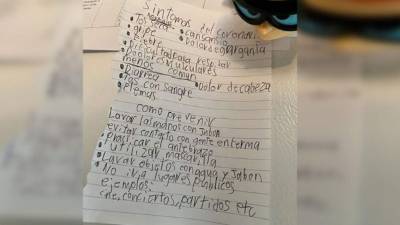 Sintomas del coronavirus
• Tos • cansansio
• gripe • dolor de garganta
• fiebre
• Dificultad para respirar
• Dolores musculares
menos comun
• Diarrea • Dolor de cabeza
• Tos con sangre
• flemas
como prevenir
Lavar las manos con Jabon
evitar contacto con gente enferma
Practicar el antebrazo
utilizar mascarilla
Lavar objetos con agua y Jabon
No ir a lugares publicos
ejemplos:
cine, conciertos, partidos etc